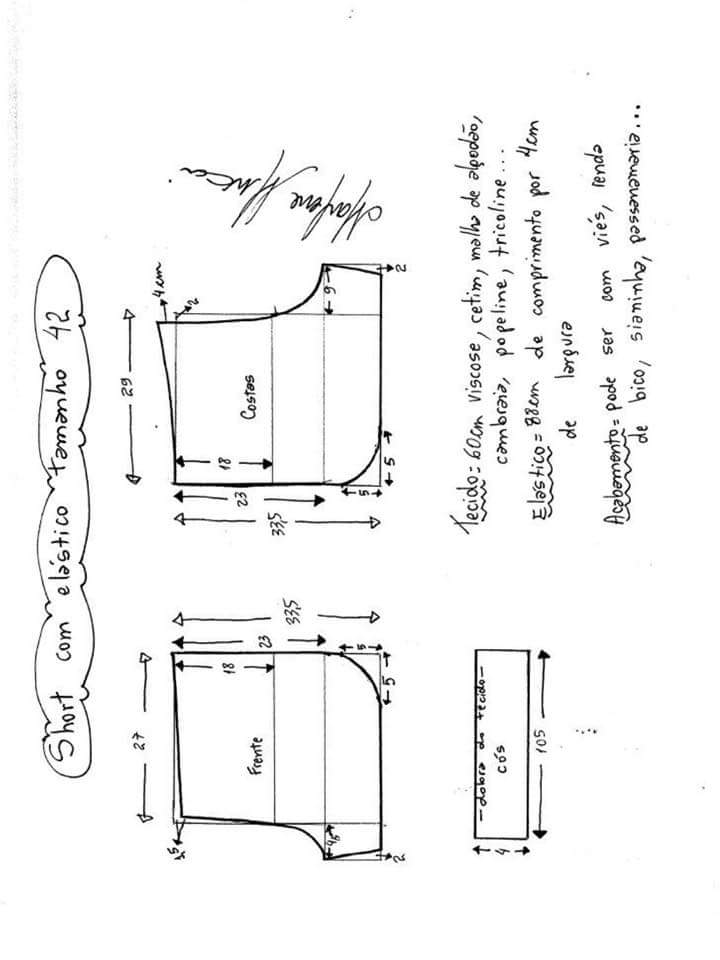 Short com elástico tamanho 42
27
1,5
18
23
33,5
Frente
5
5
4,5
2
29
4cm
2
18
23
33,5
Costas
5
5
9
2
Marlene Mukai
—dobra do tecido—
cós
4
105
Tecido= 60cm viscose, cetim, malha de algodão,
cambraia, popeline, tricoline...
Elástico= 88cm de comprimento por 4cm
de largura
Acabamento= pode ser com viés, renda
de bico, sianinha, passanamaria...